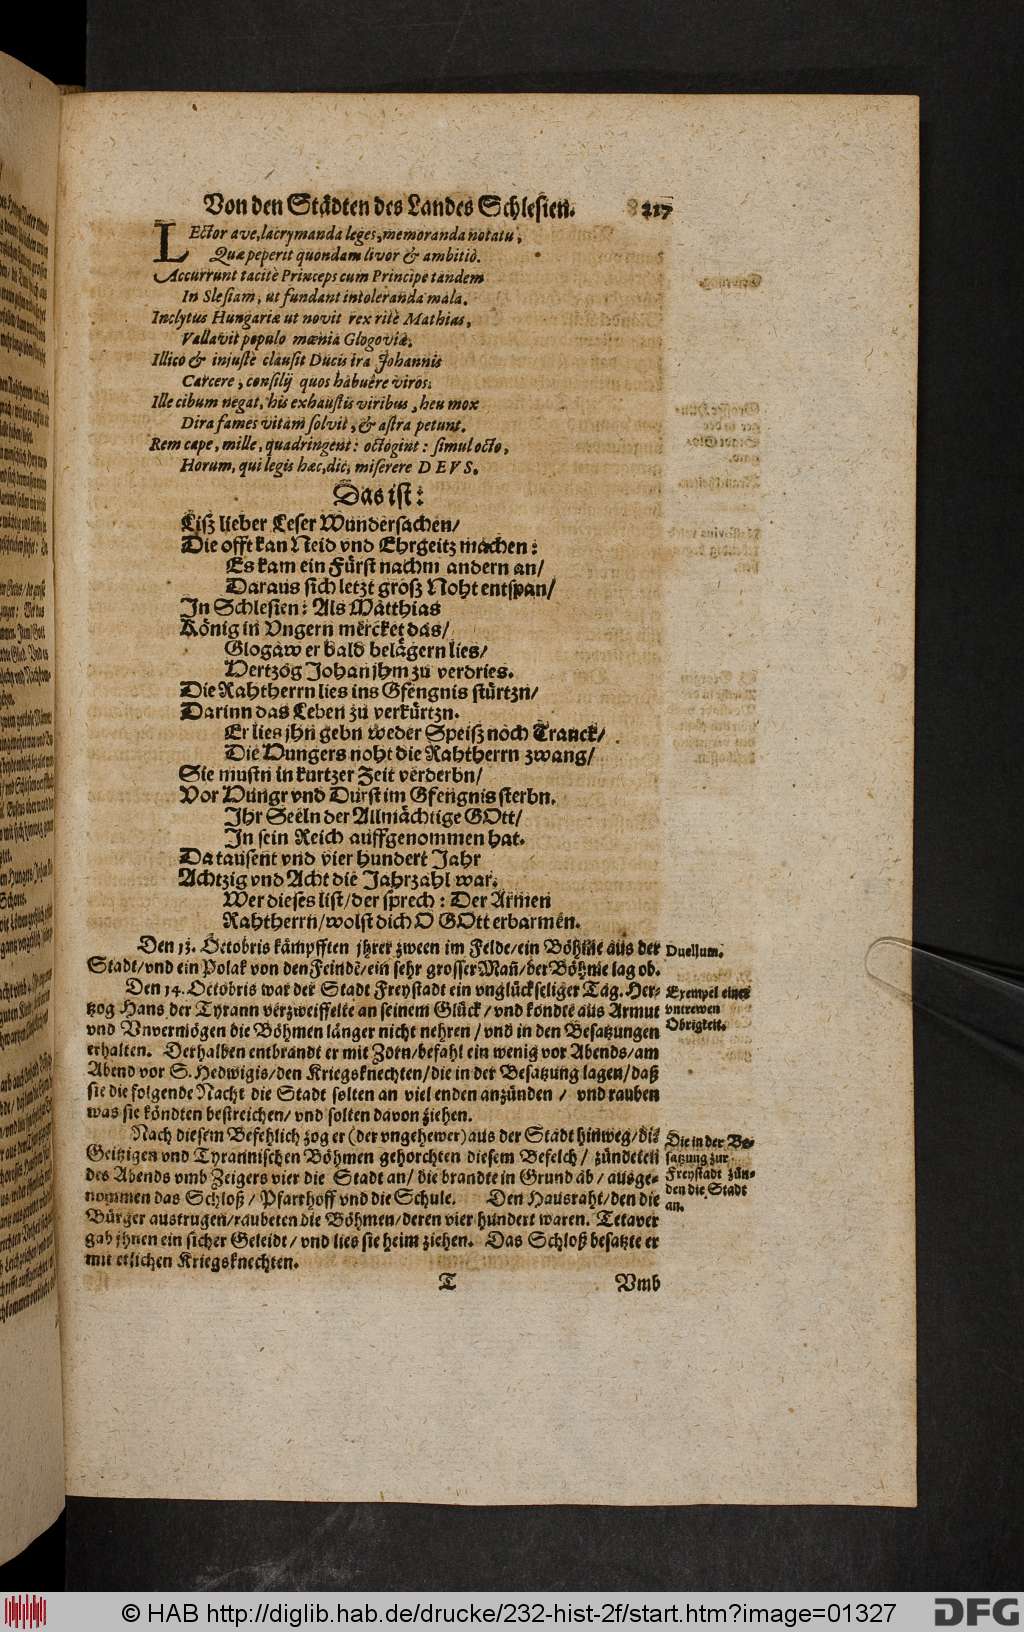 Von den Städten des Landes Schlesien. 217
LEctor ave, lacrymanda leges, memoranda notatu,
Quæ peperit quondam livor & ambitiō.
Accurrunt tacitè Princeps cum Principe tandem
In Slesiam, ut fundant intoleranda mala.
Inclytus Hungariæ ut novit rex ritè Mathias,
Vallavit populo mœnia Glogoviæ.
Illico & injustè clausit Ducis ira Johannis
Carcere, consilij quos habuêre viros:
Ille cibum negat, his exhaustis viribus, heu mox
Dira fames vitam solvit, & astra petunt.
Rem cape, mille, quadringent: octogint: simul octo,
Horum, qui legis hæc, dic, miserere DEVS.
Das ist:
Liß lieber Leser Wundersachen/
Die offt kan Neid vnd Ehrgeitz machen:
Es kam ein Fürst nachm andern an/
Daraus sich letzt groß Noht entspan/
In Schlesien: Als Matthias
König in Vngern mercket das/
Glogaw er bald belägern lies/
Hertzog Johan jhm zu verdries.
Die Rahtherrn lies ins Gfengnis stürtzn/
Darinn das Leben zu verkürtzn.
Er lies jhn gebn weder Speiß noch Tranck/
Die Hungers noht die Rahtherrn zwang/
Sie mustn in kurtzer Zeit verderbn/
Vor Hüngr vnd Durst im Gfengnis sterbn.
Ihr Seeln der Allmächtige GOtt/
In sein Reich auffgenommen hat.
Da tausent vnd vier hundert Jahr
Achtzig vnd Acht die Jahrzahl war.
Wer dieses list/ der sprech: Der Armen
Rahtherrn/ wolst dich O GOtt erbarmen.
Den 13. Octobris kämpfften jhrer zween im Felde/ ein Böhme aus der
Stadt/ vnd ein Polak von den Feinde/ ein sehr grosser Mañ/ der Böhme lag ob.
Duellum.
Den 14. Octobris war der Stadt Freystadt ein vnglückseliger Tag. Her-
tzog Hans der Tyrann verzweiffelte an seinem Glück/ vnd kondte aus Armut
vnd Vnvermögen die Böhmen länger nicht nehren/ vnd in den Besatzungen
erhalten. Derhalben entbrandt er mit Zorn/ befahl ein wenig vor Abends/ am
Abend vor S. Hedwigis/ den Kriegsknechten/ die in der Besatzung lagen/ daß
sie die folgende Nacht die Stadt solten an viel enden anzünden/ vnd rauben
was sie köndten bestreichen/ vnd solten davon ziehen.
Exempel eines
vntrewen
Obrigkeit.
Nach diesem Befehlich zog er (der vngehewer) aus der Stadt hinweg/ die
Geitzigen vnd Tyrannischen Böhmen gehorchten diesem Befelch/ zündeten
des Abends vmb Zeigers vier die Stadt an/ die brandte in Grund ab/ ausge-
nommen das Schloß/ Pfarrhoff vnd die Schule. Den Hausraht/ den die
Bürger austrugen/ raubeten die Böhmen/ deren vier hundert waren. Tetaver
gab jhnen ein sicher Geleidt/ vnd lies sie heim ziehen. Das Schloß besatzte er
mit etlichen Kriegsknechten.
Die in der Be-
satzung zur
Freystadt zün-
den die Stadt
an.
T Vmb
© HAB http://diglib.hab.de/drucke/232-hist-2f/start.htm?image=01327
DFG